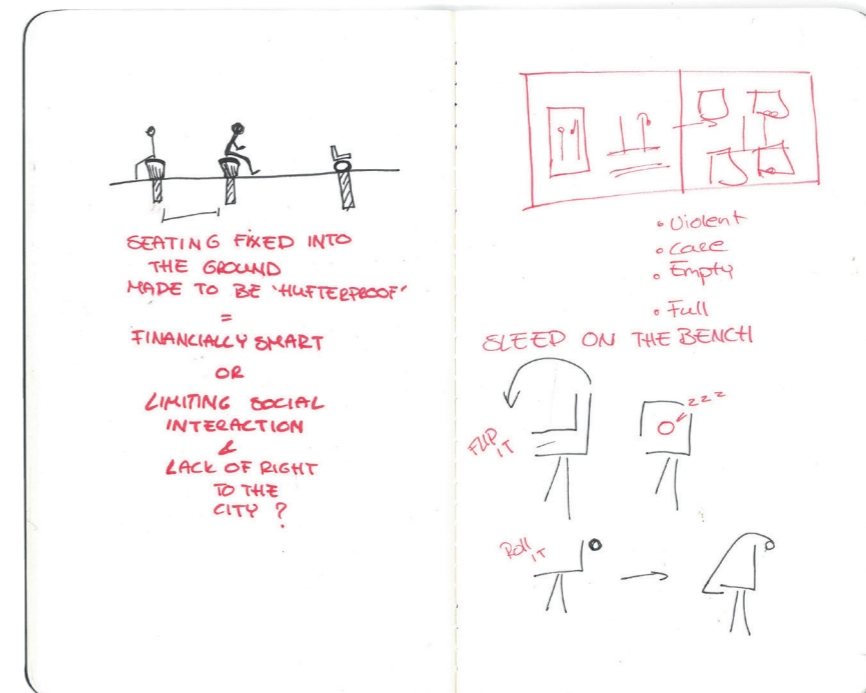 SEATING FIXED INTO
THE GROUND
MADE TO BE 'HUFTERPROOF'
=
FINANCIALLY SMART
OR
LIMITING SOCIAL
INTERACTION
&
LACK OF RIGHT
TO THE
CITY ?
• Violent
• Care
• Empty
• Full
SLEEP ON THE BENCH
FLIP
IT
zzz
Roll
IT